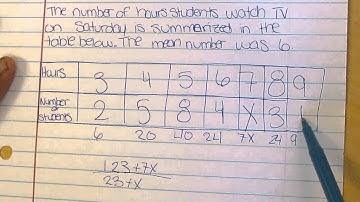 The number of hours students watch TV
on Saturday is summarized in the
table below. The mean number was 6.
Hours 3 4 5 6 7 8 9
Number of students 2 5 8 4 X 3 1
6 20 40 24 7X 24 9
123+7X
23+X